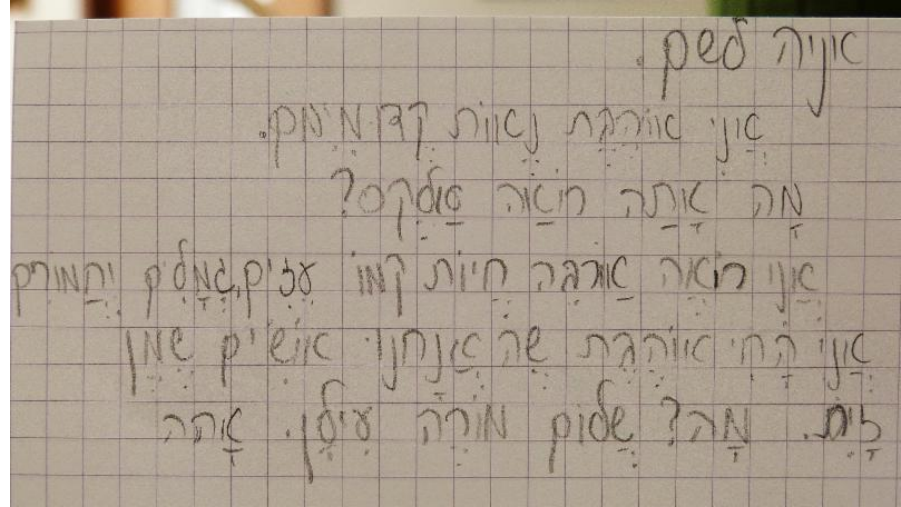 אניה לשם.
אֲנִי אוֹהֶבֶת נֶאווֹת קֶדוּמִים.
מָה אַתָה רוֹאֵה אַלֶקס?
אֲנִי רוֹאֶה אַרבֵּה חַיוֹת קמוֹ עִזִים, גְמָלִים יַחמוּרים
אֲנִי הֲכִי אוֹהֶבֶת שֶה אֲנַחנוּ אוֹשִׂים שֶמֶן
זָיִת. מָה? שָלוֹם מוֹרֶה עִילָן. אָהה